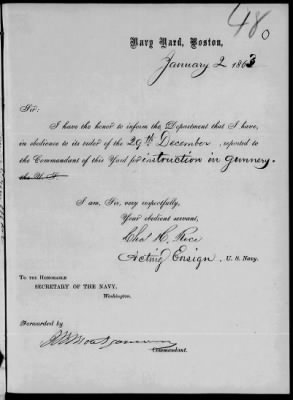 480
Navy Yard, Boston,
January 2 1863
Sir:
I have the honor to inform the Department that I have,
in obedience to its order of the 29th December, reported to
the Commandant of this Yard for instruction in gunnery.
I am, Sir, very respectfully,
Your obedient servant,
Chas H. Rice
Acting Ensign, U. S. Navy.
To the Honorable
SECRETARY OF THE NAVY,
Washington.
Forwarded by
Commandant.